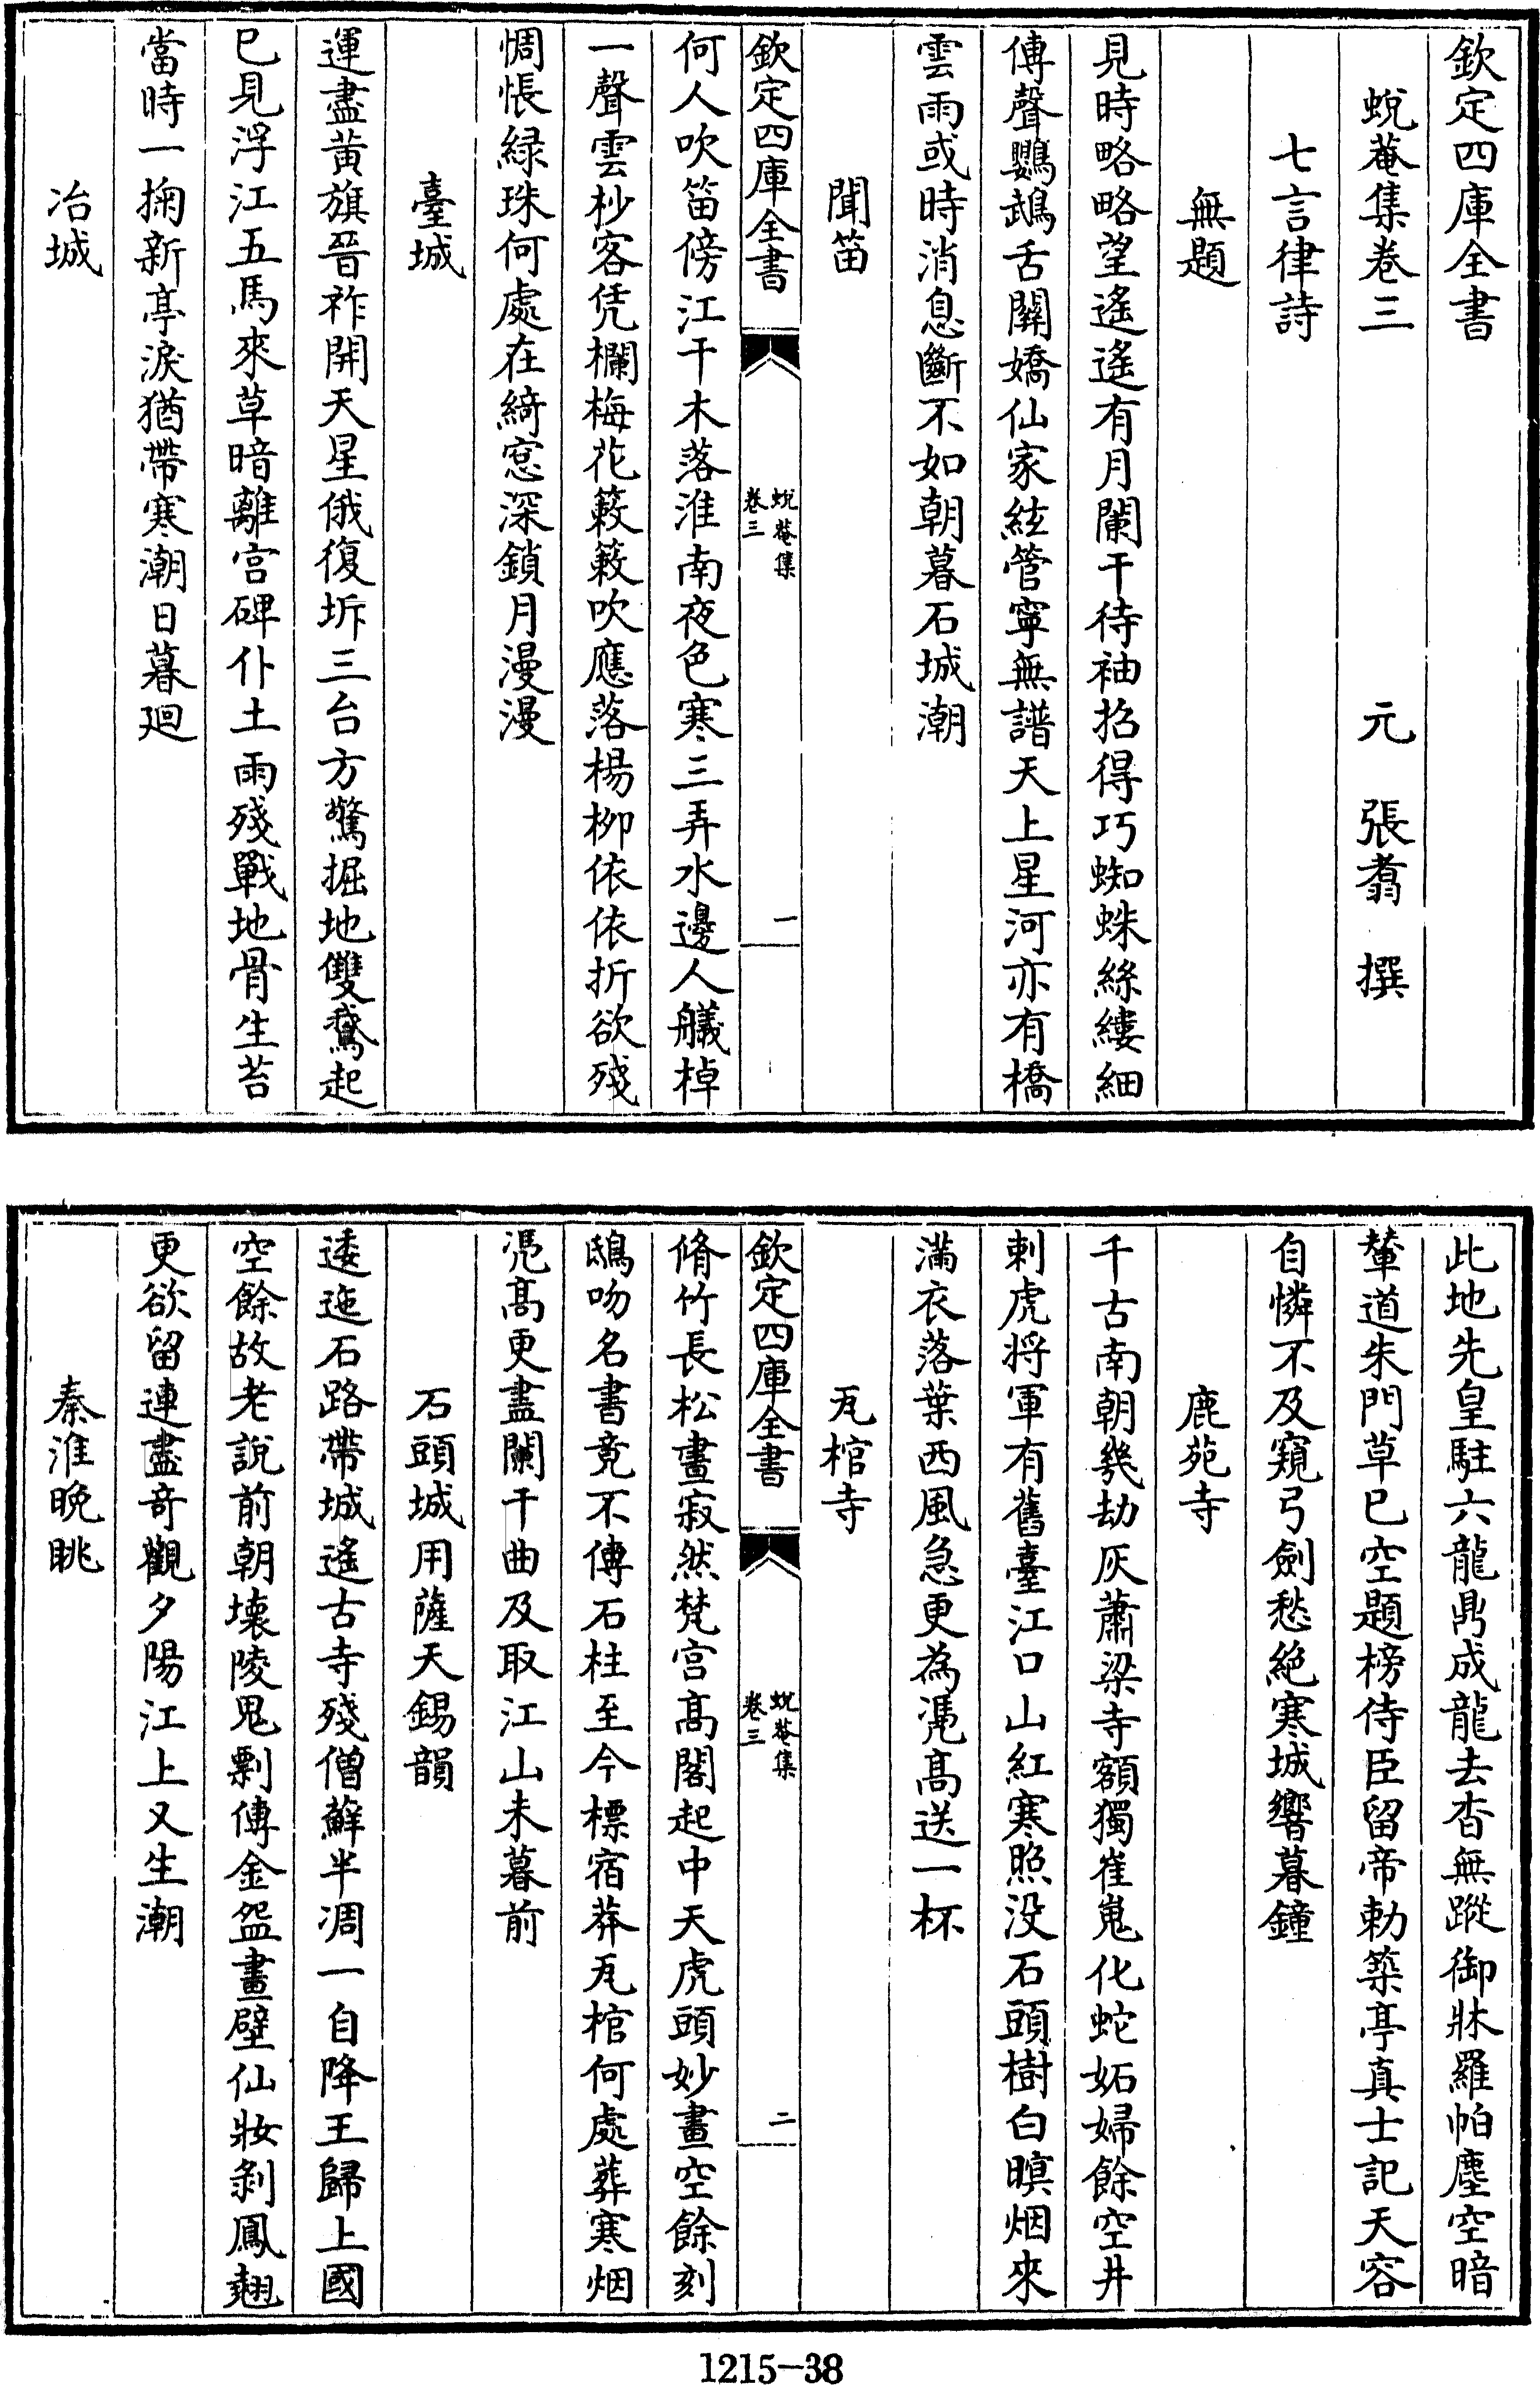 欽定四庫全書
蛻菴集卷三
元 張翥 撰
七言律詩
無題
見時略略望遙遙有月闌干待袖招得巧蜘蛛絲縷細
傳聲鸚鵡舌關嬌仙家絃管寧無譜天上星河亦有橋
雲雨或時消息斷不如朝暮石城潮
聞笛
欽定四庫全書
蛻菴集
卷三
一
何人吹笛傍江干木落淮南夜色寒三弄水邊人艤棹
一聲雲杪客凭欄梅花簌簌吹應落楊柳依依折欲殘
惆悵緑珠何處在綺窓深鎖月漫漫
臺城
運盡黃旗晉祚開天星俄復坼三台方驚掘地雙鵞起
已見浮江五馬來草暗離宫碑仆土雨殘戰地骨生苔
當時一掬新亭淚猶帶寒潮日暮廻
冶城
此地先皇駐六龍鼎成龍去杳無蹤御牀羅帕塵空暗
輦道朱門草已空題榜侍臣留帝勅築亭真士記天容
自憐不及窺弓劍愁絕寒城響暮鐘
鹿苑寺
千古南朝幾劫灰蕭梁寺額獨崔嵬化蛇妬婦餘空井
刺虎將軍有舊臺江口山紅寒照没石頭樹白暝烟來
滿衣落葉西風急更為凴髙送一杯
瓦棺寺
欽定四庫全書
蛻菴集
卷三
二
脩竹長松晝寂然梵宫髙閣起中天虎頭妙畫空餘刻
鴟吻名書竟不傳石柱至今標宿莽瓦棺何處葬寒烟
凴髙更盡闌干曲及取江山未暮前
石頭城用薩天錫韻
逶迤石路帶城遙古寺殘僧蘚半凋一自降王歸上國
空餘故老說前朝壊陵鬼剽傳金盌畫壁仙妝剝鳳翹
更欲留連盡奇觀夕陽江上又生潮
秦淮晚眺
1215-38